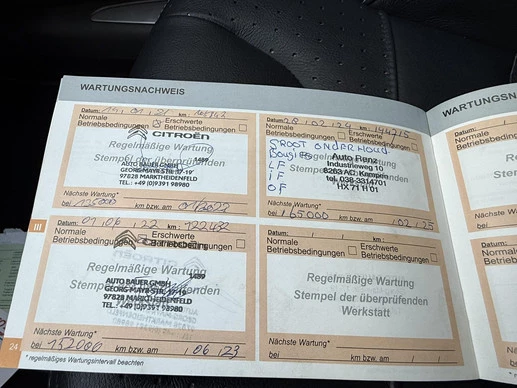 WARTUNGSNACHWEIS
Datum: 19, 01, 21 km:
Normale Betriebsbedingungen
Erschwerte Betriebsbedingungen
CITROËN
Regelmäßige Wartung
Stempel der überprüfenden
AUTO BAUER GMBH
GEORG-MAYR-STR. 17-19
97828 MARKTHEIDENFELD
TEL.: +49 (0)9391 98980
Nächste Wartung*
bei 125000 km bzw. am 01/2022
Datum: 28, 02, 24 km: 144215
Normale Betriebsbedingungen
Erschwerte Betriebsbedingungen
GROOT ONDERHOUD
Bougies
LF
iF
OF
Regelmäßige Wartung
Stempel der
Auto Renz
Industrieweg 10
8263 AC Kampen
tel. 038-3314701
HX 71 11 01
Nächste Wartung*
bei 165000 km bzw. am 02/25
III
Datum: 01, 06, 22 km: 122432
Normale Betriebsbedingungen
Erschwerte Betriebsbedingungen
Regelmäßige Wartung
AUTO BAUER GMBH
GEORG-MAYR-STR. 17-19
97828 MARKTHEIDENFELD
TEL.: +49 (0)9391 98980
Nächste Wartung*
bei 152000 km bzw. am 06/23
Datum: / / km:
Normale Betriebsbedingungen
Erschwerte Betriebsbedingungen
Regelmäßige Wartung
Stempel der überprüfenden
Werkstatt
Nächste Wartung*
bei km bzw. am /
24
* regelmäßiges Wartungsintervall beachten
WARTUNGSN
Datum:
Normale
Betriebsbedi
Reg
Stemp
Nächste Wart
bei
Datum:
Normale
Betriebsbedin
Reg
Stemp
Nächste Wartu
bei